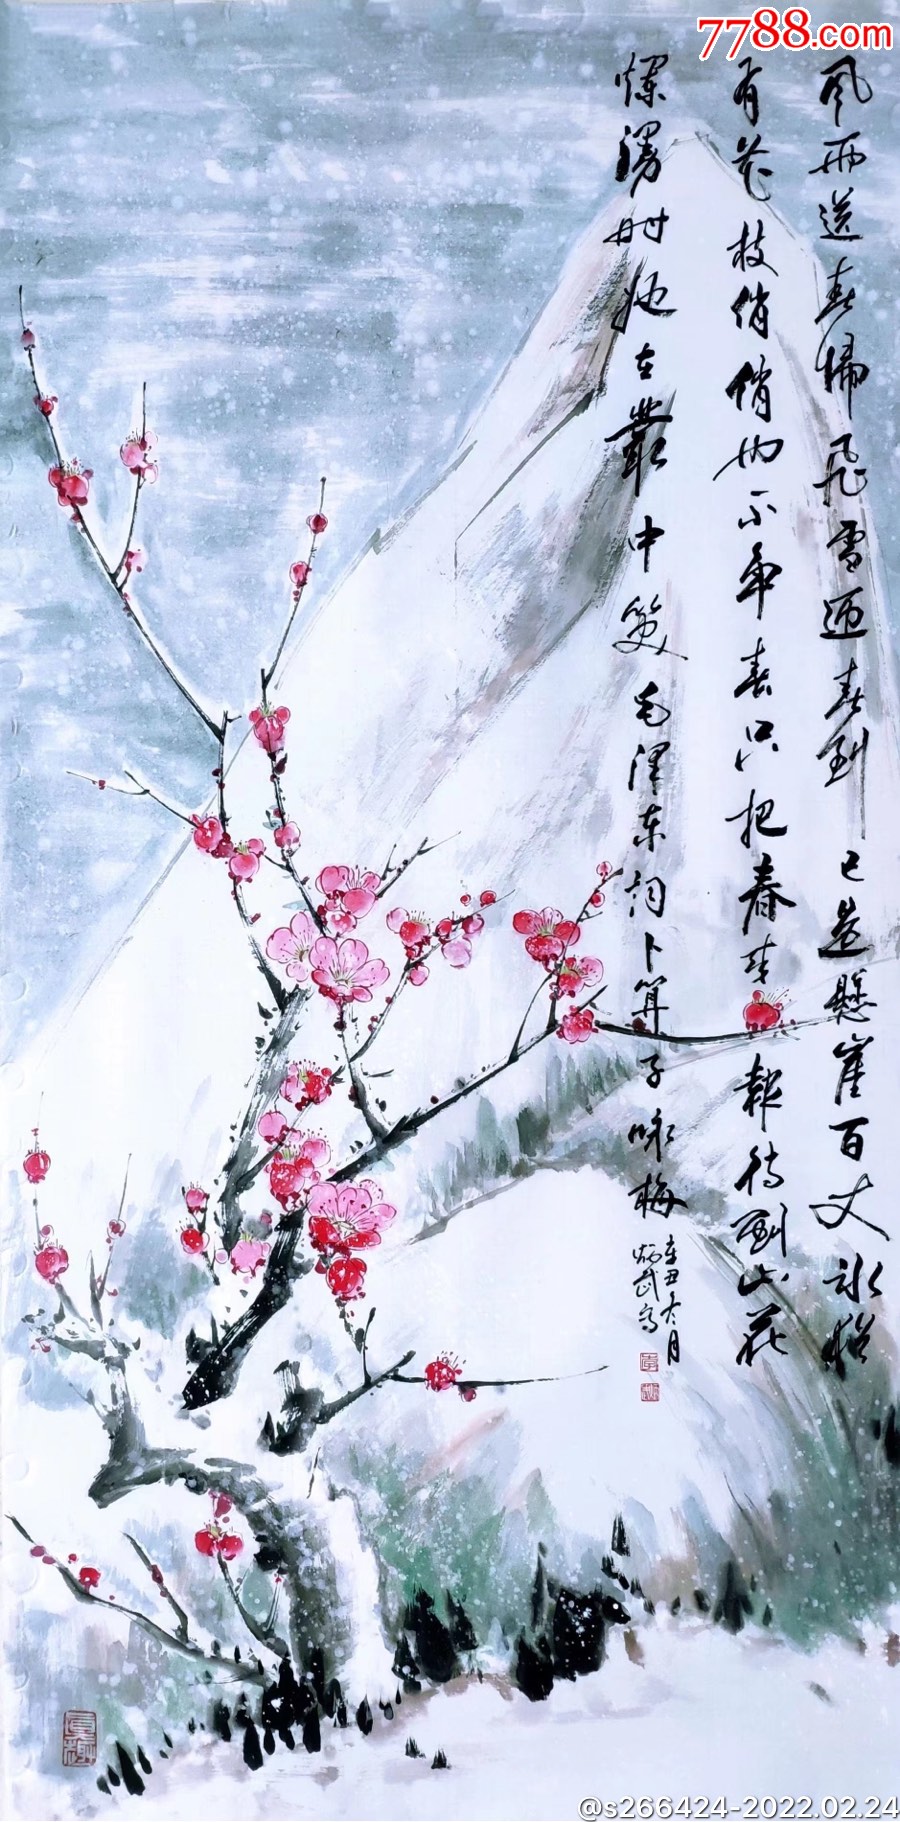 7788.com
风雨送春歸飛雪迎春到已是懸崖百丈冰猶
有花枝俏俏也不争春只把春来報待到山花
爛漫时她在叢中笑毛澤东词卜算子咏梅
辛丑冬月
炳武写
@s266424-2022.02.24